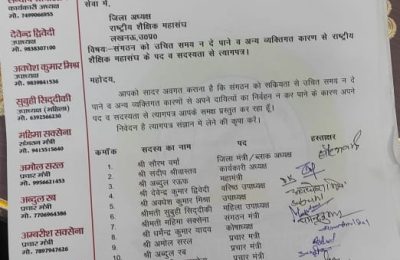 कार्यकारी अध्यक्ष
मो. 7499066955
देवेन्द्र द्विवेदी
उपाध्यक्ष
मो. 9838307100
अवधेश कुमार मिश्र
उपाध्यक्ष
मो. 9839841536
सुबुही सिद्दीकी
उपाध्यक्ष (महिला)
मो. 6392566230
महिमा सक्सेना
संगठन मंत्री
मो. 9415515640
अमोल सरल
प्रचार मंत्री
मो. 9956621453
अब्दुल रब
प्रचार मंत्री
मो. 7706964386
अम्बरीश सक्सेना
प्रचार मंत्री
मो. 7897947626
सेवा में,
जिला अध्यक्ष
राष्ट्रीय शैक्षिक महासंघ
लखनऊ,उ०प्र०
विषय:-संगठन को उचित समय न दे पाने व अन्य व्यक्तिगत कारण से राष्ट्रीय
शैक्षिक महासंघ के पद व सदस्यता से त्यागपत्र।
महोदय,
आपको सादर अवगत कराना है कि संगठन को सक्रियता से उचित समय न दे
पाने व अन्य व्यक्तिगत कारण से अपने दायित्वों का निर्वहन न कर पाने के कारण अपने
पद व सदस्यता से त्यागपत्र आपके समक्ष प्रस्तुत कर रहा हूँ।
निवेदन है त्यागपत्र संज्ञान मे लेने की कृपा करें।
क्रमाँक सदस्य का नाम पद हस्ताक्षर
1 श्री सौरभ वर्मा जिला मंत्री/ब्लाक अध्यक्ष
2 श्री संदीप श्रीवास्तव कार्यकारी अध्यक्ष
3 श्री अब्दुल रऊफ महामंत्री
4 श्री देवेन्द्र कुमार द्विवेदी वरिष्ठ उपाध्यक्ष
5 श्री अवधेश कुमार मिश्र उपाध्यक्ष
6 श्रीमती सुबुही सिद्दुकी महिला उपाध्यक्ष
7 श्रीमती महिमा सक्सेना संगठन मंत्री
8 श्री धर्मेन्द्र कुमार यादव कोषाध्यक्ष
9 श्री अमोल सरल प्रचार मंत्री
10 श्री अब्दुल रब प्रचार मंत्री